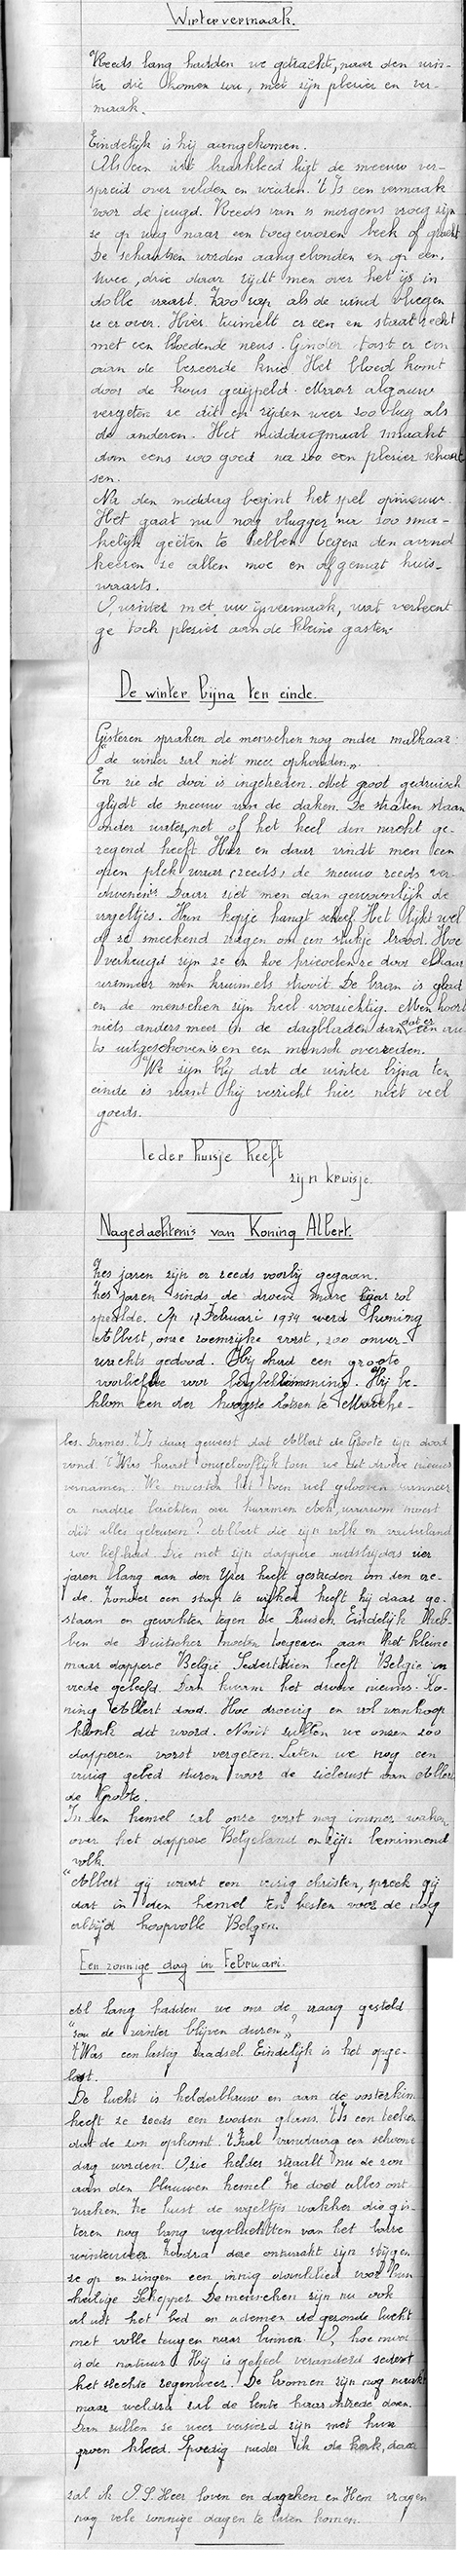 Wintervermaak.
Reeds lang hadden we getracht, naar den win-
ter die komen zou, met zijn plezier en ver-
maak.
Eindelijk is hij aangekomen.
Als een wit baarkleed ligt de sneeuw ver-
spreid over velden en weiden. 't Is een vermaak
voor de jeugd. Reeds van 's morgens vroeg zijn
ze op weg naar een toegevrozen beek of gracht
De schaatsen worden aangebonden en op een,
twee, drie daar rijdt men over het ijs in
dolle vaart. Zoo rap als de wind vliegen
ze er over. Hier tuimelt er een en staat recht
met een bloedende neus. Ginder tast er een
aan de bezeerde knie. Het bloed komt
door de kous gesijpeld. Maar algauw
vergeten ze dit en rijden weer zoo vlug als
de anderen. Het middagmaal smaakt
dan eens zoo goed na zoo een plezier schaat
sen.
Na den middag begint het spel opnieuw.
Het gaat nu nog vlugger na zoo sma-
kelijk geëten te hebben. Tegen den avond
keeren ze allen moe en afgemat huis-
waarts.
O, winter met uw ijsvermaak, wat verleent
ge toch plezier aan de kleine gasten.
De winter bijna ten einde.
Gisteren spraken de menschen nog onder malkaar:
"de winter zal niet meer ophouden".
En zie de dooi is ingetreden. Met groot gedruisch
glijdt de sneeuw van de daken. De straten staan
onder water, net of het heel den nacht ge-
regend heeft. Hier en daar vindt men een
open plek waar (reeds) de sneeuw reeds ver-
dwenen is. Daar ziet men dan gewoonlijk de
vogeltjes. Hun kopje hangt scheef. Het lijkt wel
of ze smeekend vragen om een stukje brood. Hoe
verheugd zijn ze en hoe krioelen ze door elkaar
wanneer men kruimels strooit. De baan is glad
en de menschen zijn heel voorzichtig. Men hoort
niets anders meer in de dagbladen dan dat er een au
to uitgeschoven is en een mensch overreden.
We zijn blij dat de winter bijna ten
einde is want hij verricht hier niet veel
goeds.
Ieder huisje heeft
zijn kruisje.
Nagedachtenis van Koning Albert.
Zes jaren zijn er reeds voorbij gegaan.
Zes jaren sinds de droeve mare
speelde. Op 17 Februari 1934 werd koning
Albert, onze roemrijke vorst, zoo onver-
wachts gedood. Hij had een groote
voorliefde voor bergbeklimming. Hij be-
klom een der hoogste rotsen te Marche-
les-Dames. 't Is daar geweest dat Albert de Groote zijn dood
vond. 't Was haast ongelooflijk toen we dit droeve nieuws
vernamen. We moesten het toen wel gelooven wanneer
er nadere berichten over kwamen. Och, waarom moest
dit alles gebeuren? Albert die zijn volk en vaderland
zoo lief had. Die met zijn dappere medestrijders vier
jaren lang aan den Yzer heeft gestreden om den vre-
de. Zonder een stap te wijken heeft hij daar ge-
staan en gevochten tegen de Pruisen. Eindelijk heb-
ben de Duitschers moeten toegeven aan het kleine
maar dappere België. Sedertdien heeft België in
vrede geleefd. Dan kwam het droeve nieuws. Ko-
ning Albert dood. Hoe droevig en vol wanhoop
klonk dit woord. Nooit zullen we onzen zoo
dapperen vorst vergeten. Laten we nog een
vurig gebed sturen voor de zielerust van Albert
de Groote.
In den hemel zal onze vorst nog immer waken
over het dappere Belgenland en zijn beminnend
volk.
"Albert gij waart een vurig christen, spreek gij
dat in den hemel ten besten voor de nog
altijd hoopvolle Belgen.
Een zonnige dag in Februari.
Al lang hadden we ons de vraag gesteld
"zou de winter blijven duren"?
't Was een lastig raadsel. Eindelijk is het opge-
lost.
De lucht is helderblauw en aan de oosterkim
heeft ze reeds een rooden glans. 't Is een teeken
dat de zon opkomt. 't Zal vandaag een schoone
dag worden. O, zie helder straalt nu de zon
aan den blauwen hemel. Ze doet alles ont-
waken. Ze kust de vogeltjes wakker die gis-
teren nog bang wegvluchtten van het barre
winterweer. Zoodra deze ontwaakt zijn stijgen
ze op en zingen een innig danklied voor hun
heilige Schepper. De menschen zijn nu ook
al uit het bed en ademen de gezonde lucht
met volle teugen naar binnen. O, hoe mooi
is de natuur! Hij is geheel veranderd sedert
het slechte regenweer. De boomen zijn nog naakt
maar weldra zal de lente haar intrede doen.
Dan zullen ze weer versierd zijn met hun
groen kleed. Spoedig nader ik de kerk, daar
zal ik O.L. Heer loven en danken en Hem vragen
nog vele zonnige dagen te laten komen.